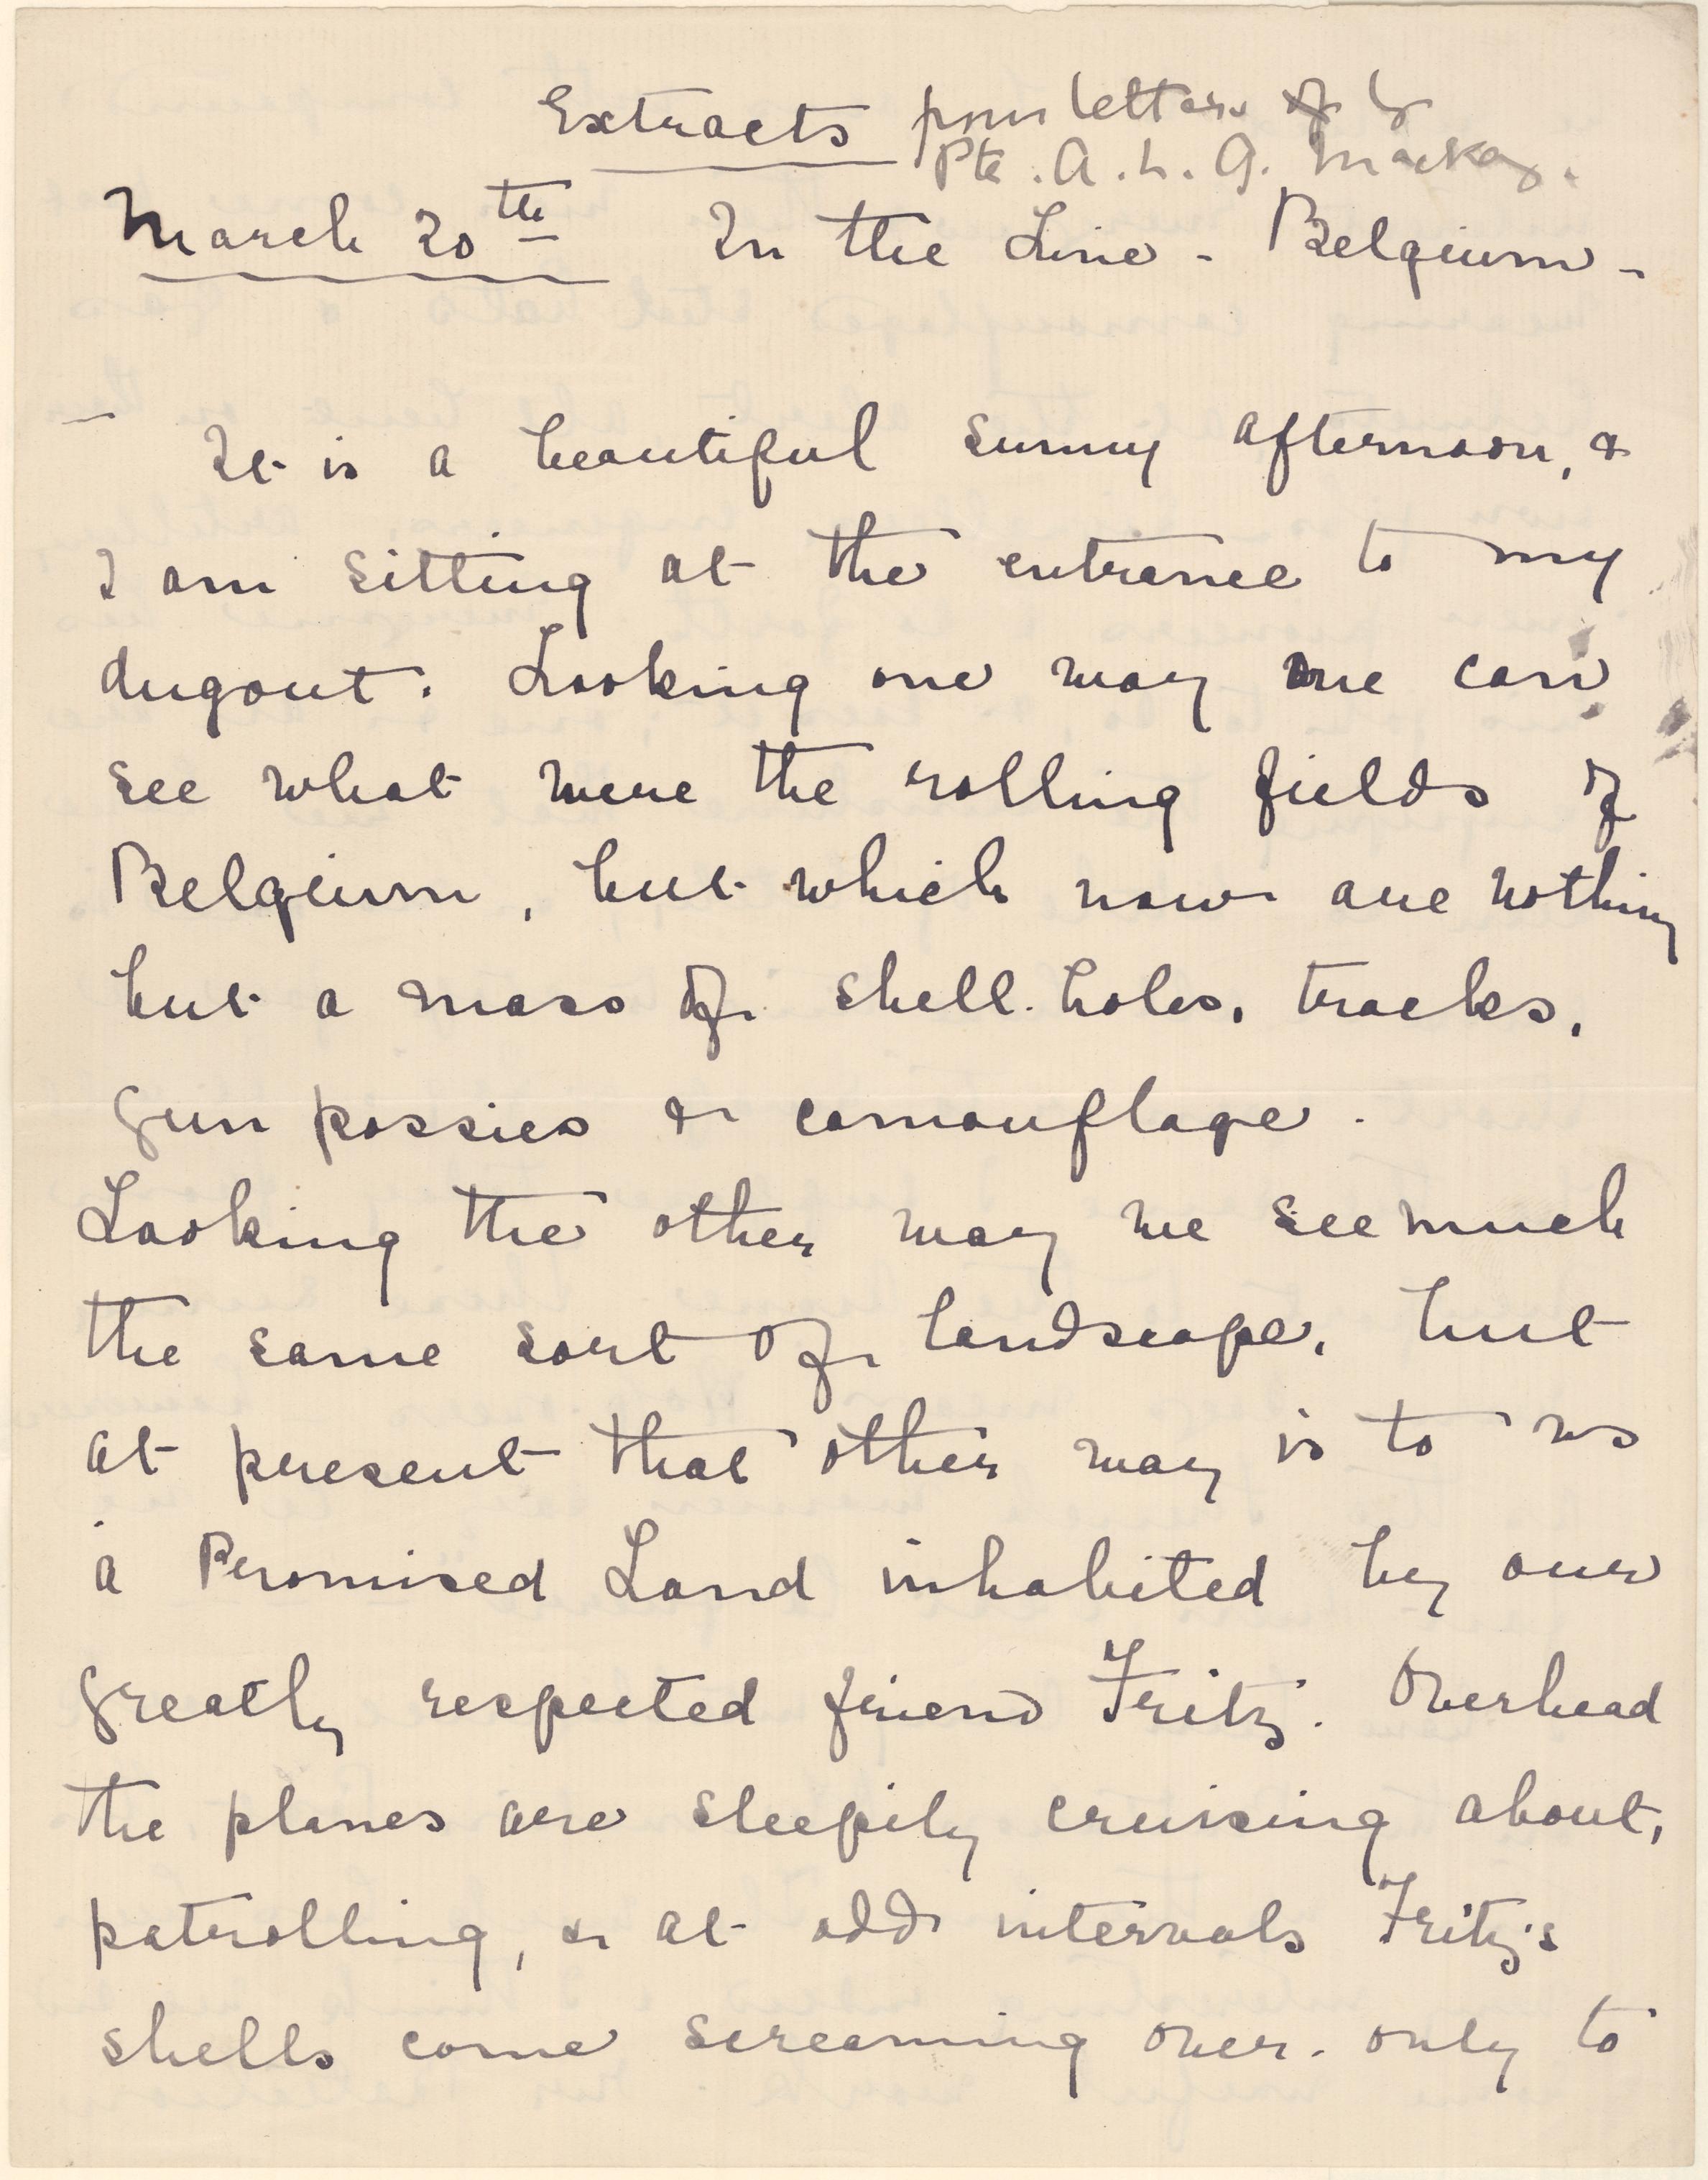 Extracts from letters of by
Pte. A. L. G. Mackay.
March 20th In the Line - Belgium -
- It is a beautiful sunny afternoon, &
I am sitting at the entrance to my
dugout. Looking one way one can
see what were the rolling fields of
Belgium, but which now are nothing
but a mass of shell-holes, tracks,
gun possies & camouflage.
Looking the other way we see much
the same sort of landscape, but
at present that other way is to us
a Promised Land inhabited by our
greatly respected friend Fritz. Overhead
the planes are sleepily cruising about,
patrolling, & at odd intervals Fritz's
shells come screaming over. only to